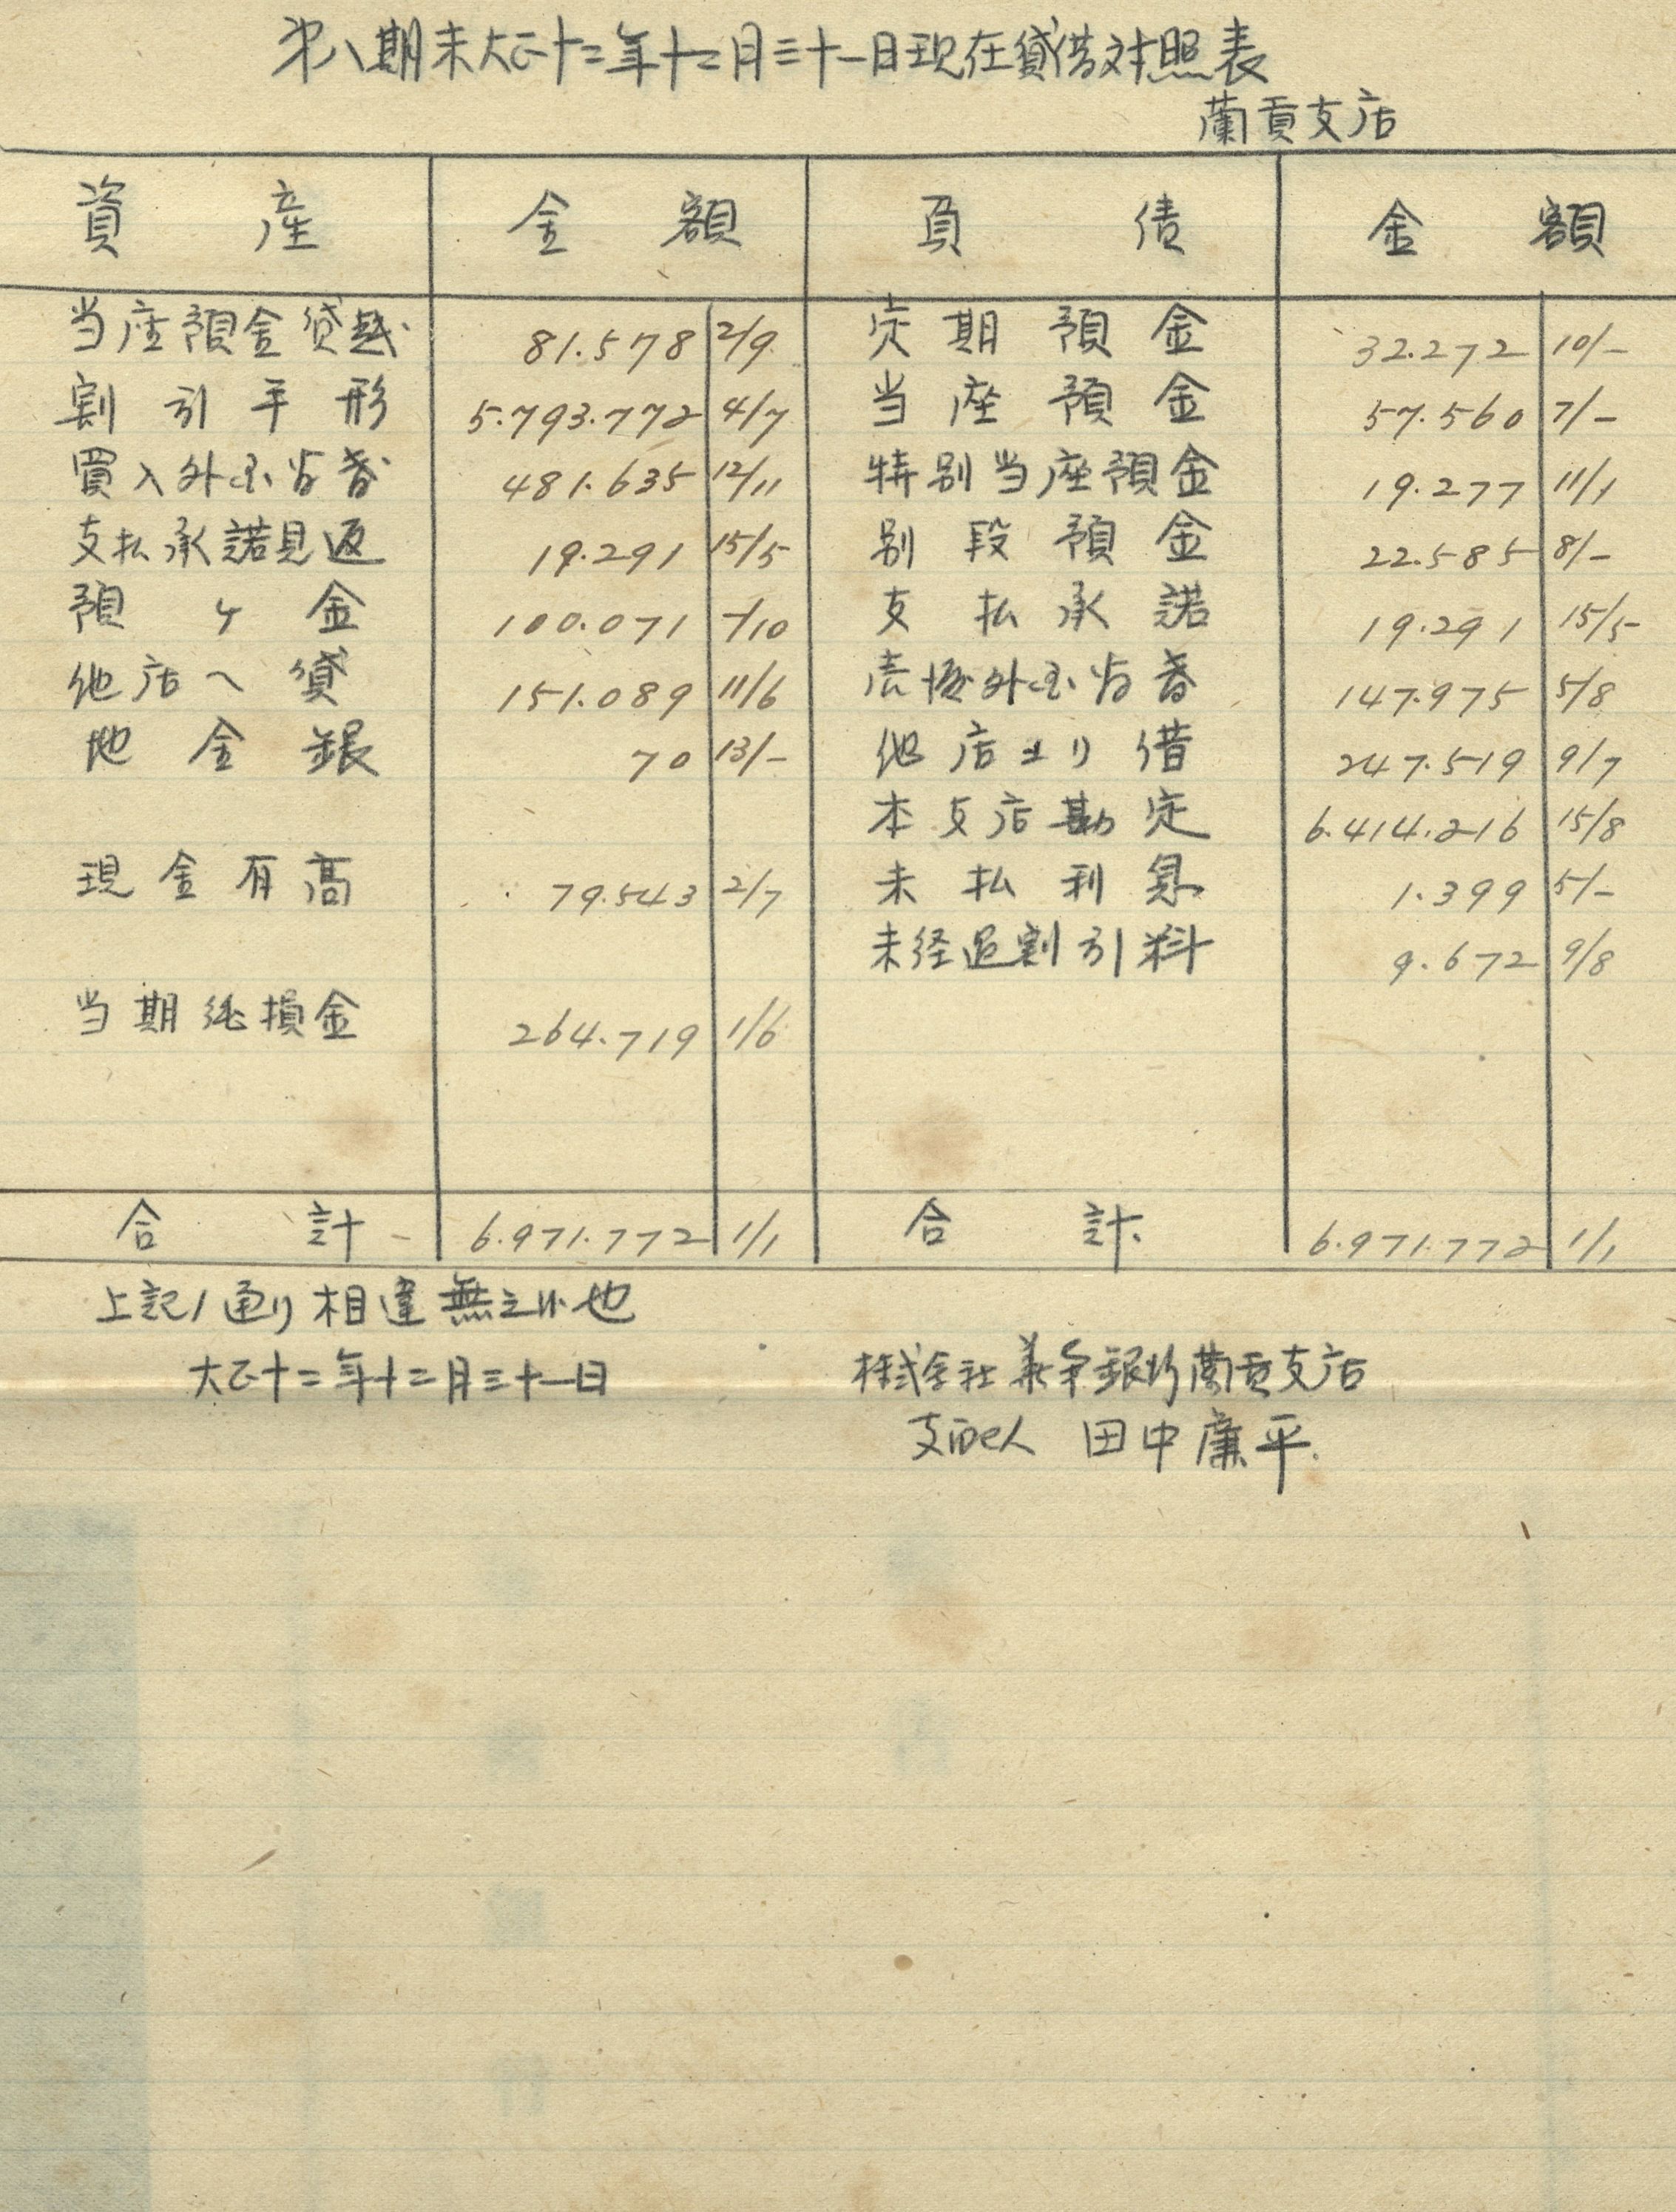 第八期末大正十二年十二月三十一日現在貸借対照表
蘭貢支店
資産 金額 負債 金額
当座預金貸越 81.578 2/9 定期預金 32.272 10/-
割引手形 5.793.772 4/7 当座預金 57.560 7/-
買入外国為替 481.635 12/11 特別当座預金 19.277 11/1
支払承諾見返 19.291 15/5 別段預金 22.585 8/-
預ケ金 100.071 -/10 支払承諾 19.291 15/5
他店へ貸 151.089 11/6 売渡外国為替 147.975 5/8
地金銀 70 13/- 他店ヨリ借 247.519 9/7
本支店勘定 6.414.216 15/8
現金有高 79.543 2/7 未払利息 1.399 5/-
未経過割引料 9.672 9/8
当期純損金 264.719 1/6
合計 6.971.772 1/1 合計 6.971.772 1/1
上記ノ通リ相違無之候也
大正十二年十二月三十一日 株式会社 銀行蘭貢支店
支配人 田中廉平